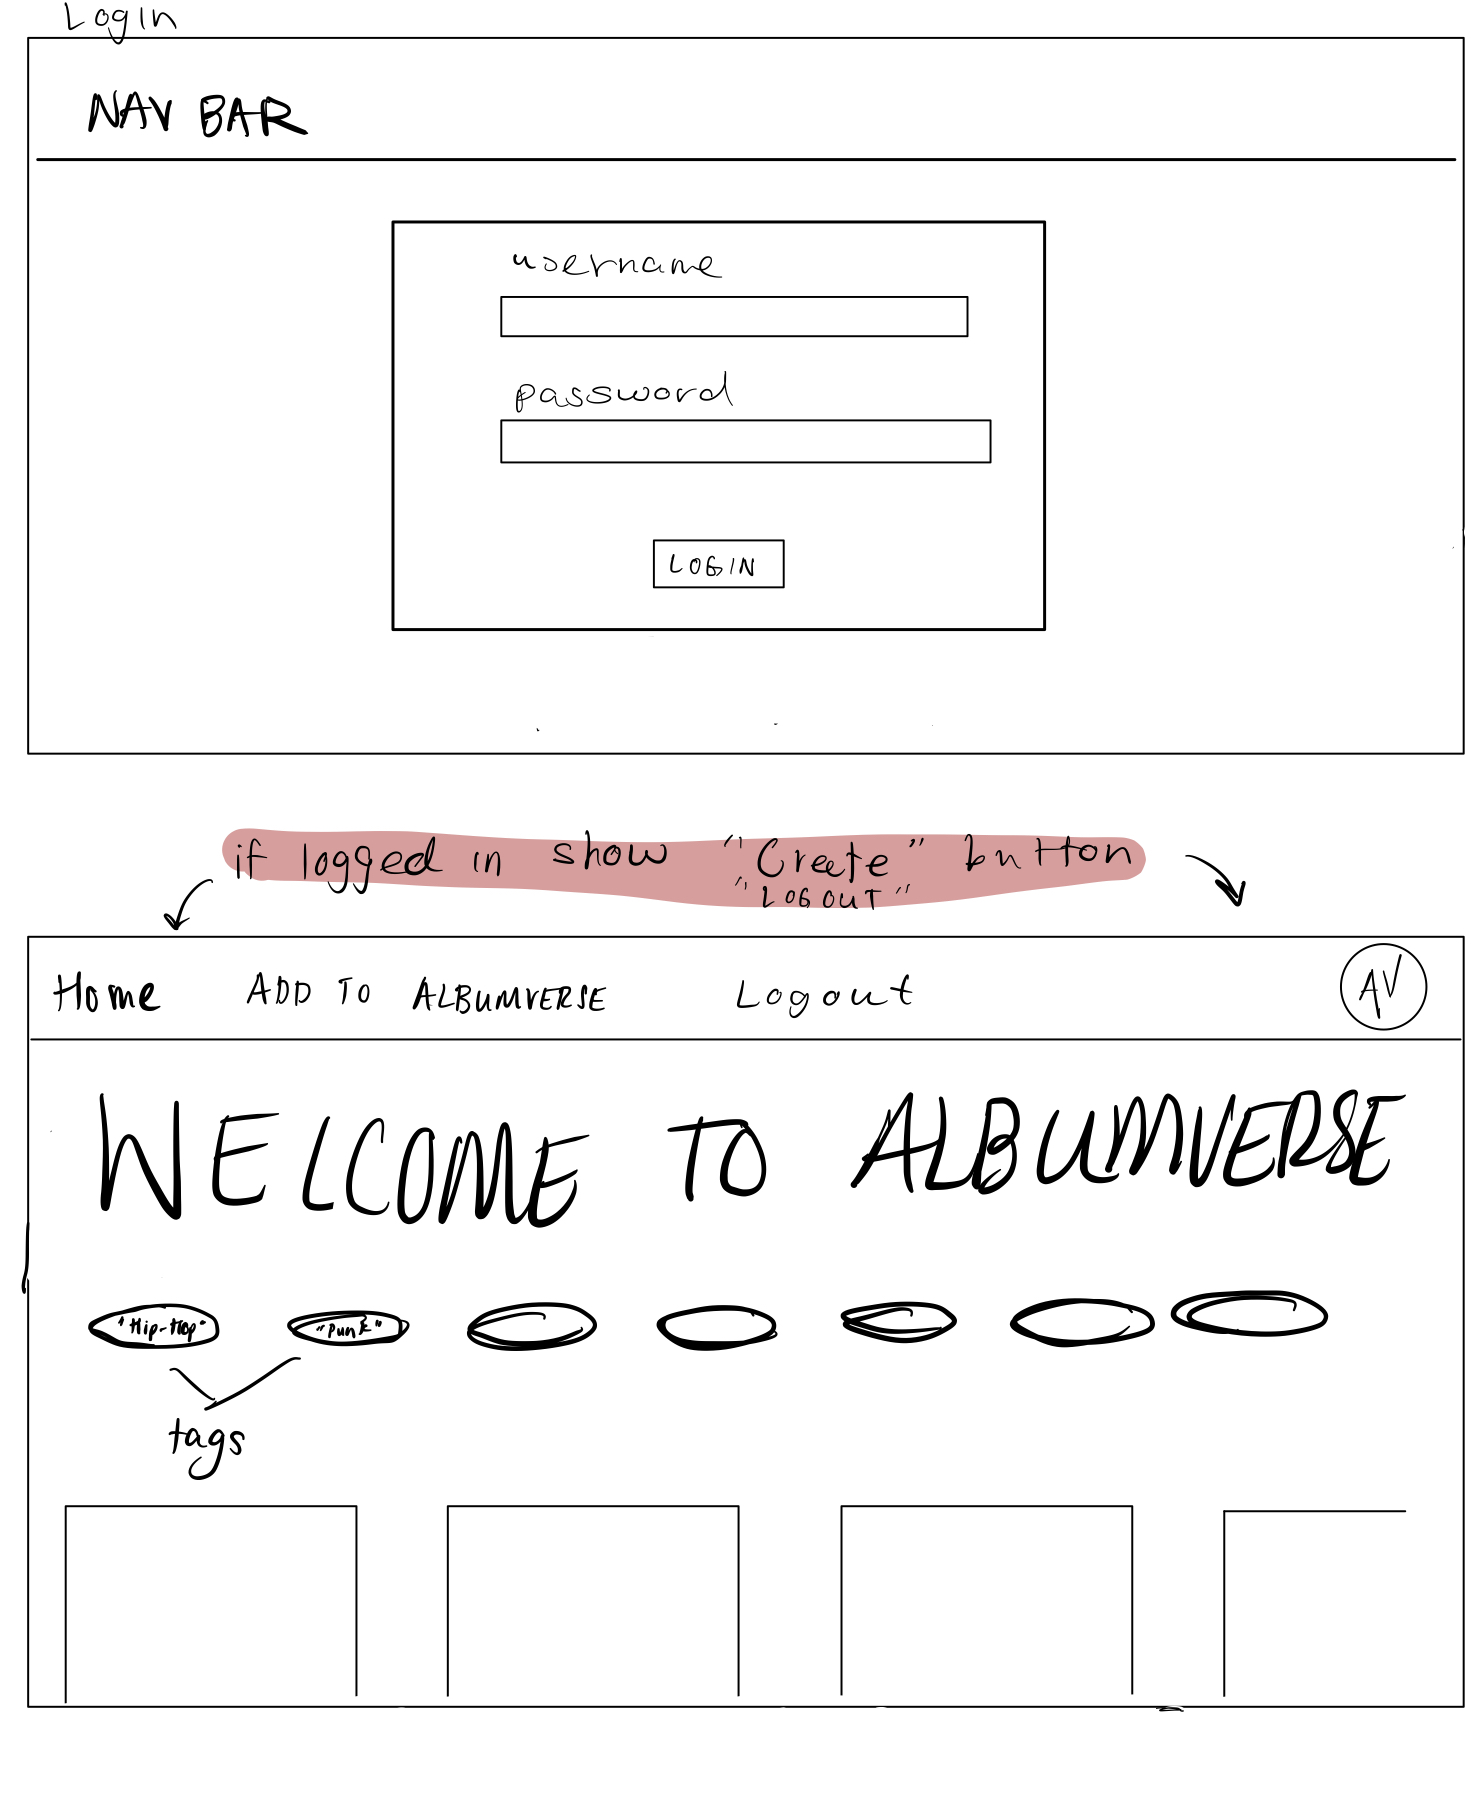 Login
NAV BAR
username
password
LOGIN
if logged in show "Create" button
"LOGOUT"
Home ADD TO ALBUMVERSE Logout AV
WELCOME TO ALBUMVERSE
"Hip-Hop" "Punk"
tags